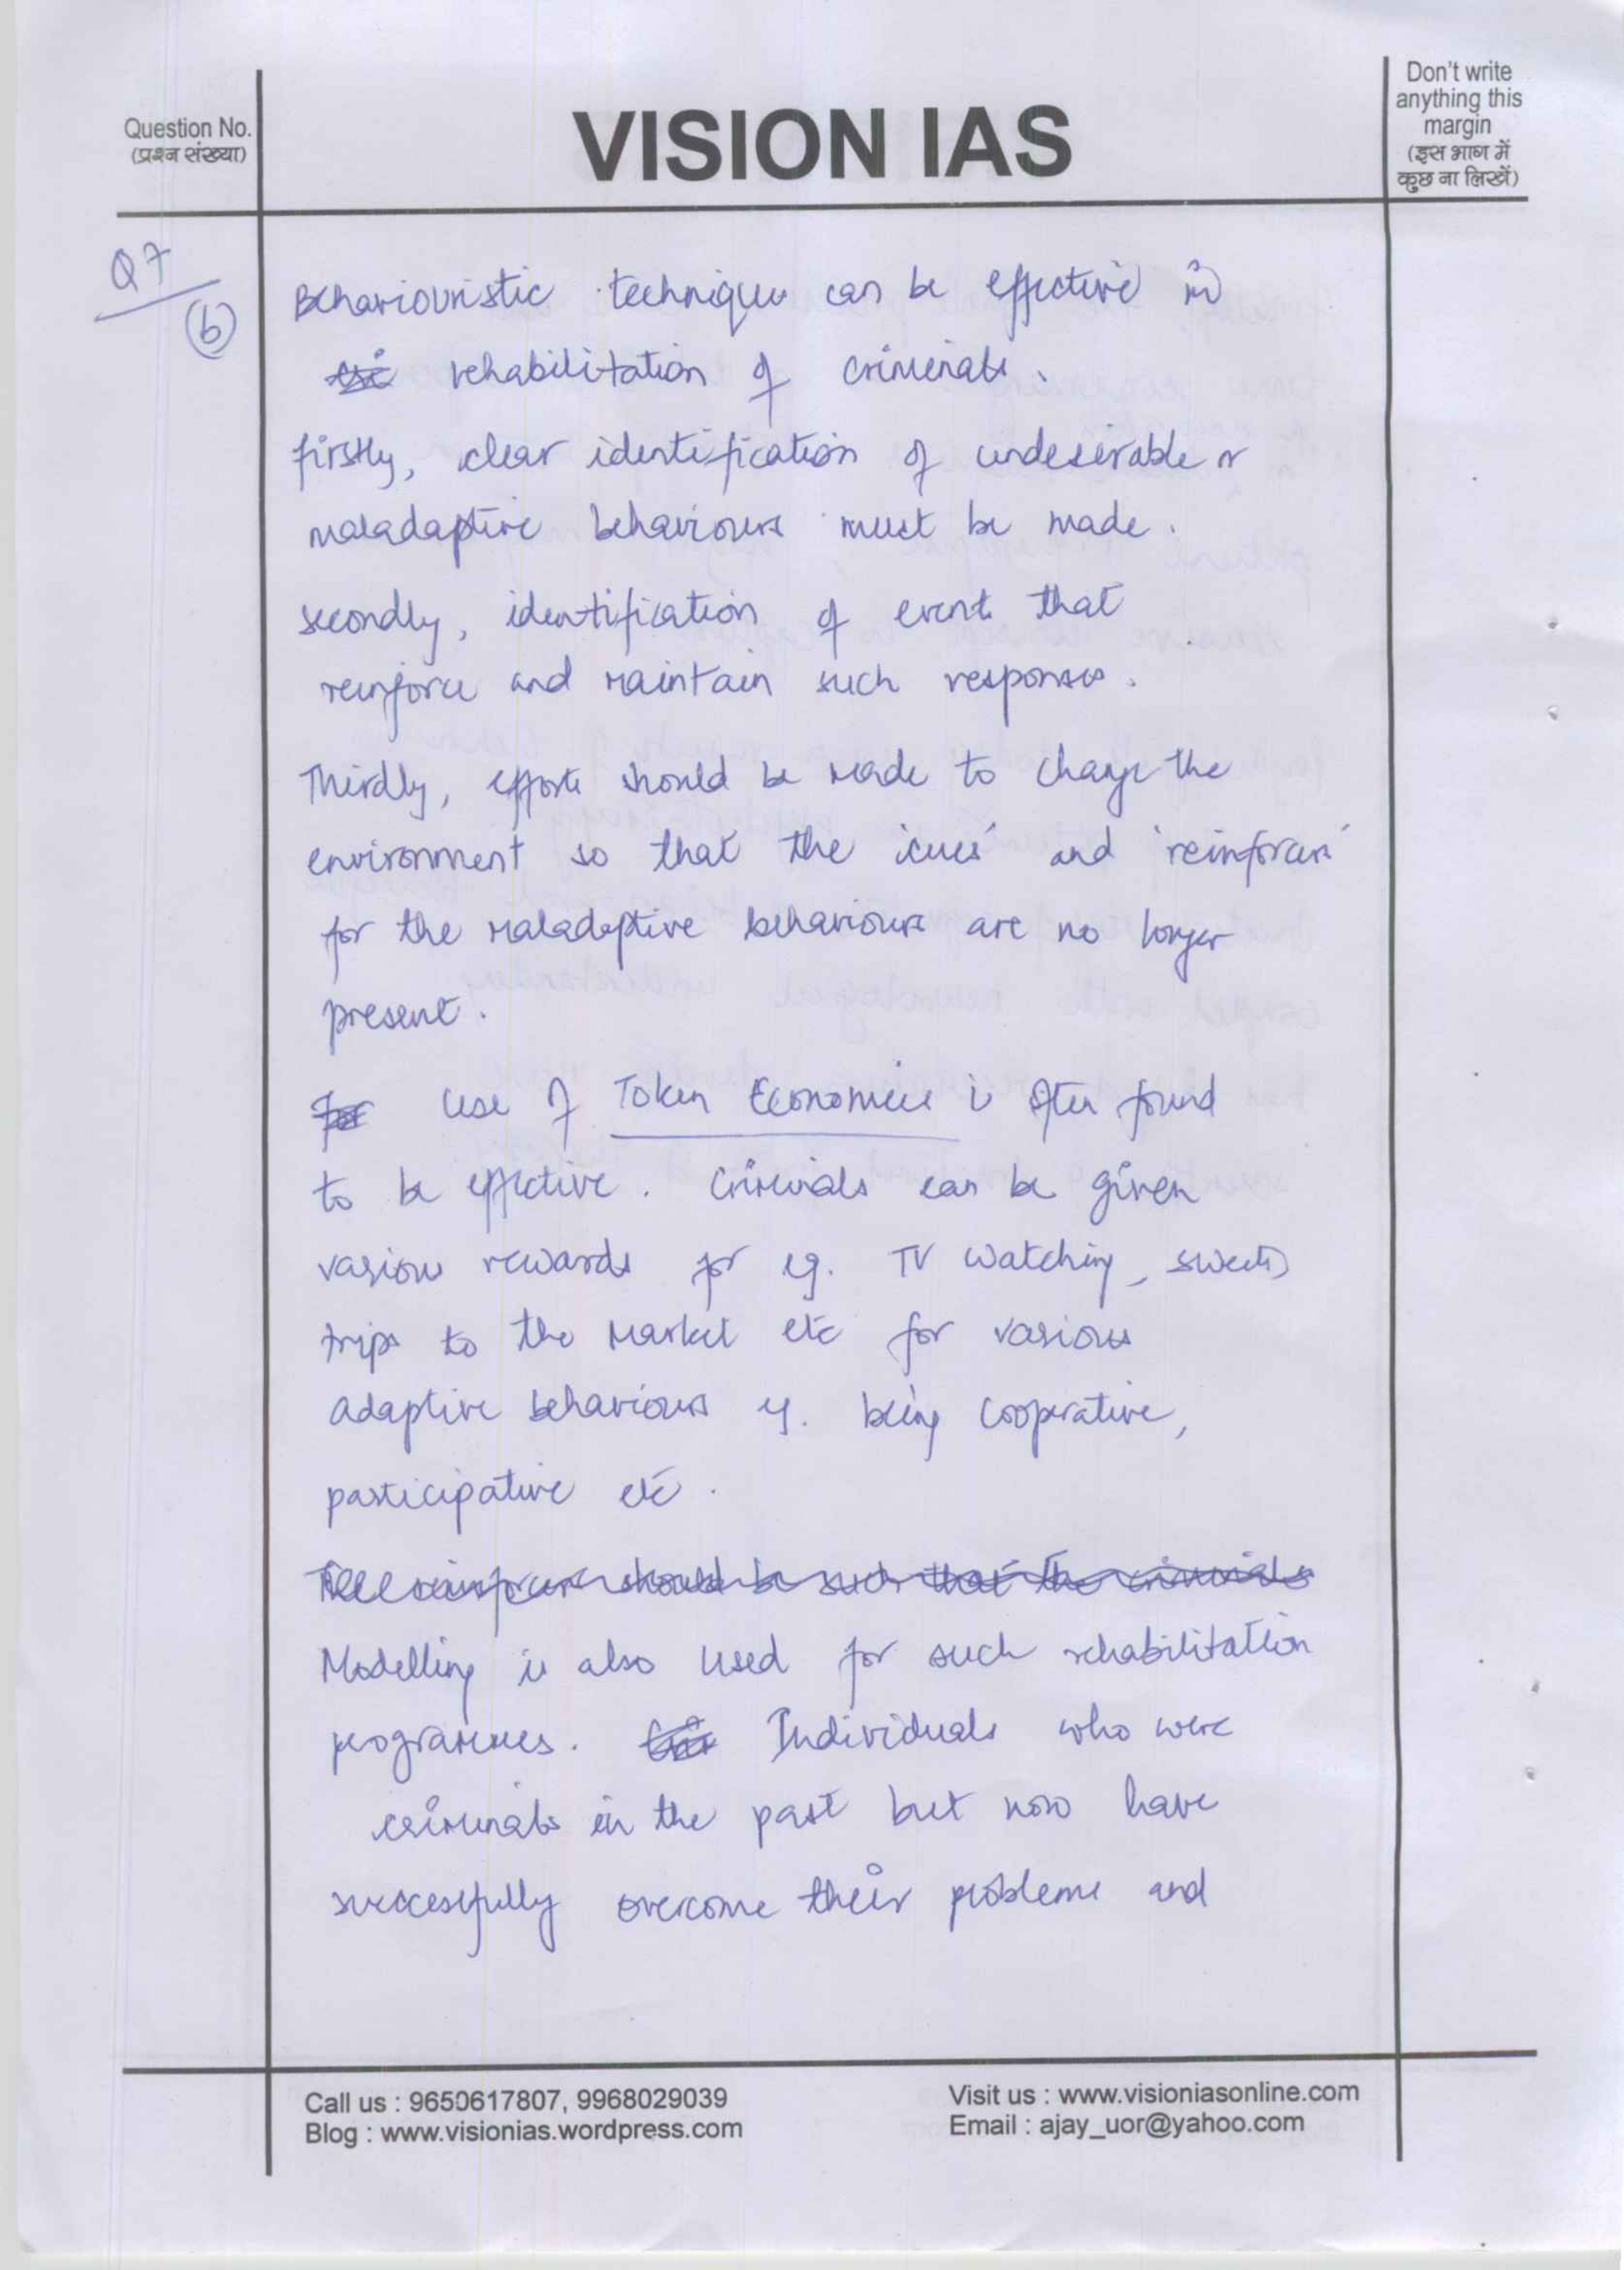 Question No.
(प्रश्न संख्या)
VISION IAS
Don't write
anything this
margin
(इस भाग में
कुछ ना लिखें)
Q7
(b)
Behaviouristic techniques can be effective in
rehabilitation of criminals.
firstly, clear identification of undesirable or
maladaptive behaviours must be made.
secondly, identification of events that
reinforce and maintain such responses.
Thirdly, efforts should be made to change the
environment so that the 'cues' and 'reinforcers'
for the maladaptive behaviours are no longer
present.
Use of Token Economies is often found
to be effective. Criminals can be given
various rewards for eg. TV watching, sweets,
trips to the market etc for various
adaptive behaviours eg. being cooperative,
participative etc.
The reinforcers should be such that the criminals
Modelling is also used for such rehabilitation
programmes. Individuals who were
criminals in the past but now have
successfully overcome their problems and
Call us : 9650617807, 9968029039
Blog : www.visionias.wordpress.com
Visit us : www.visioniasonline.com
Email : ajay_uor@yahoo.com